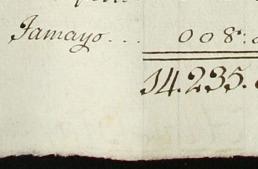 Tamayo... 008:
14.235.